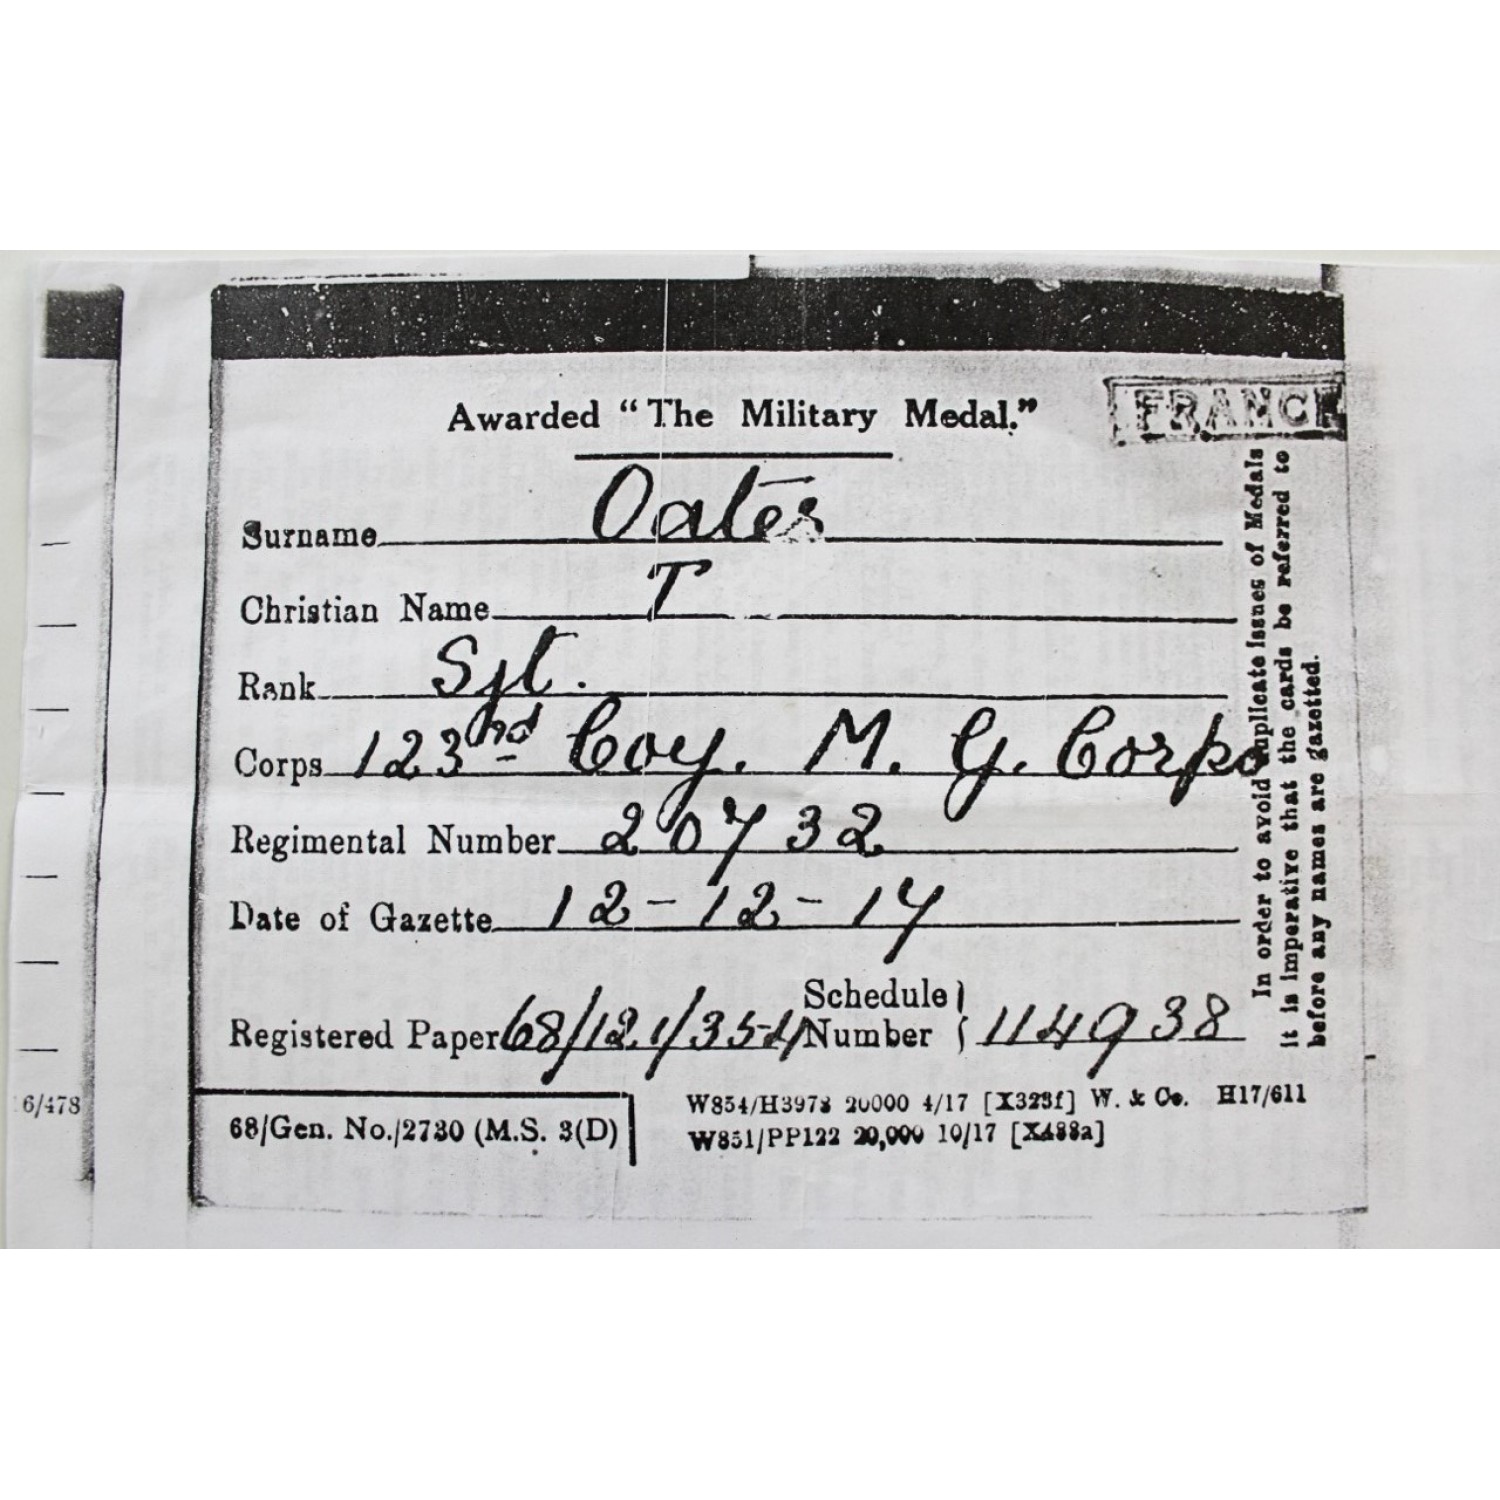 Awarded “The Military Medal.”
FRANCE
Surname Oates
Christian Name T
Rank Sjt.
Corps 123nd Coy. M. G. Corps
Regimental Number 20732
Date of Gazette 12-12-17
Registered Paper 68/121/354 Schedule Number 114938
In order to avoid duplicate issues of Medals
it is imperative that the cards be referred to
before any names are gazetted.
6/478
68/Gen. No./2730 (M.S. 3(D)
W854/H3978 20000 4/17 [X323f] W. & Co. H17/611
W851/PP122 20,000 10/17 [X488a]